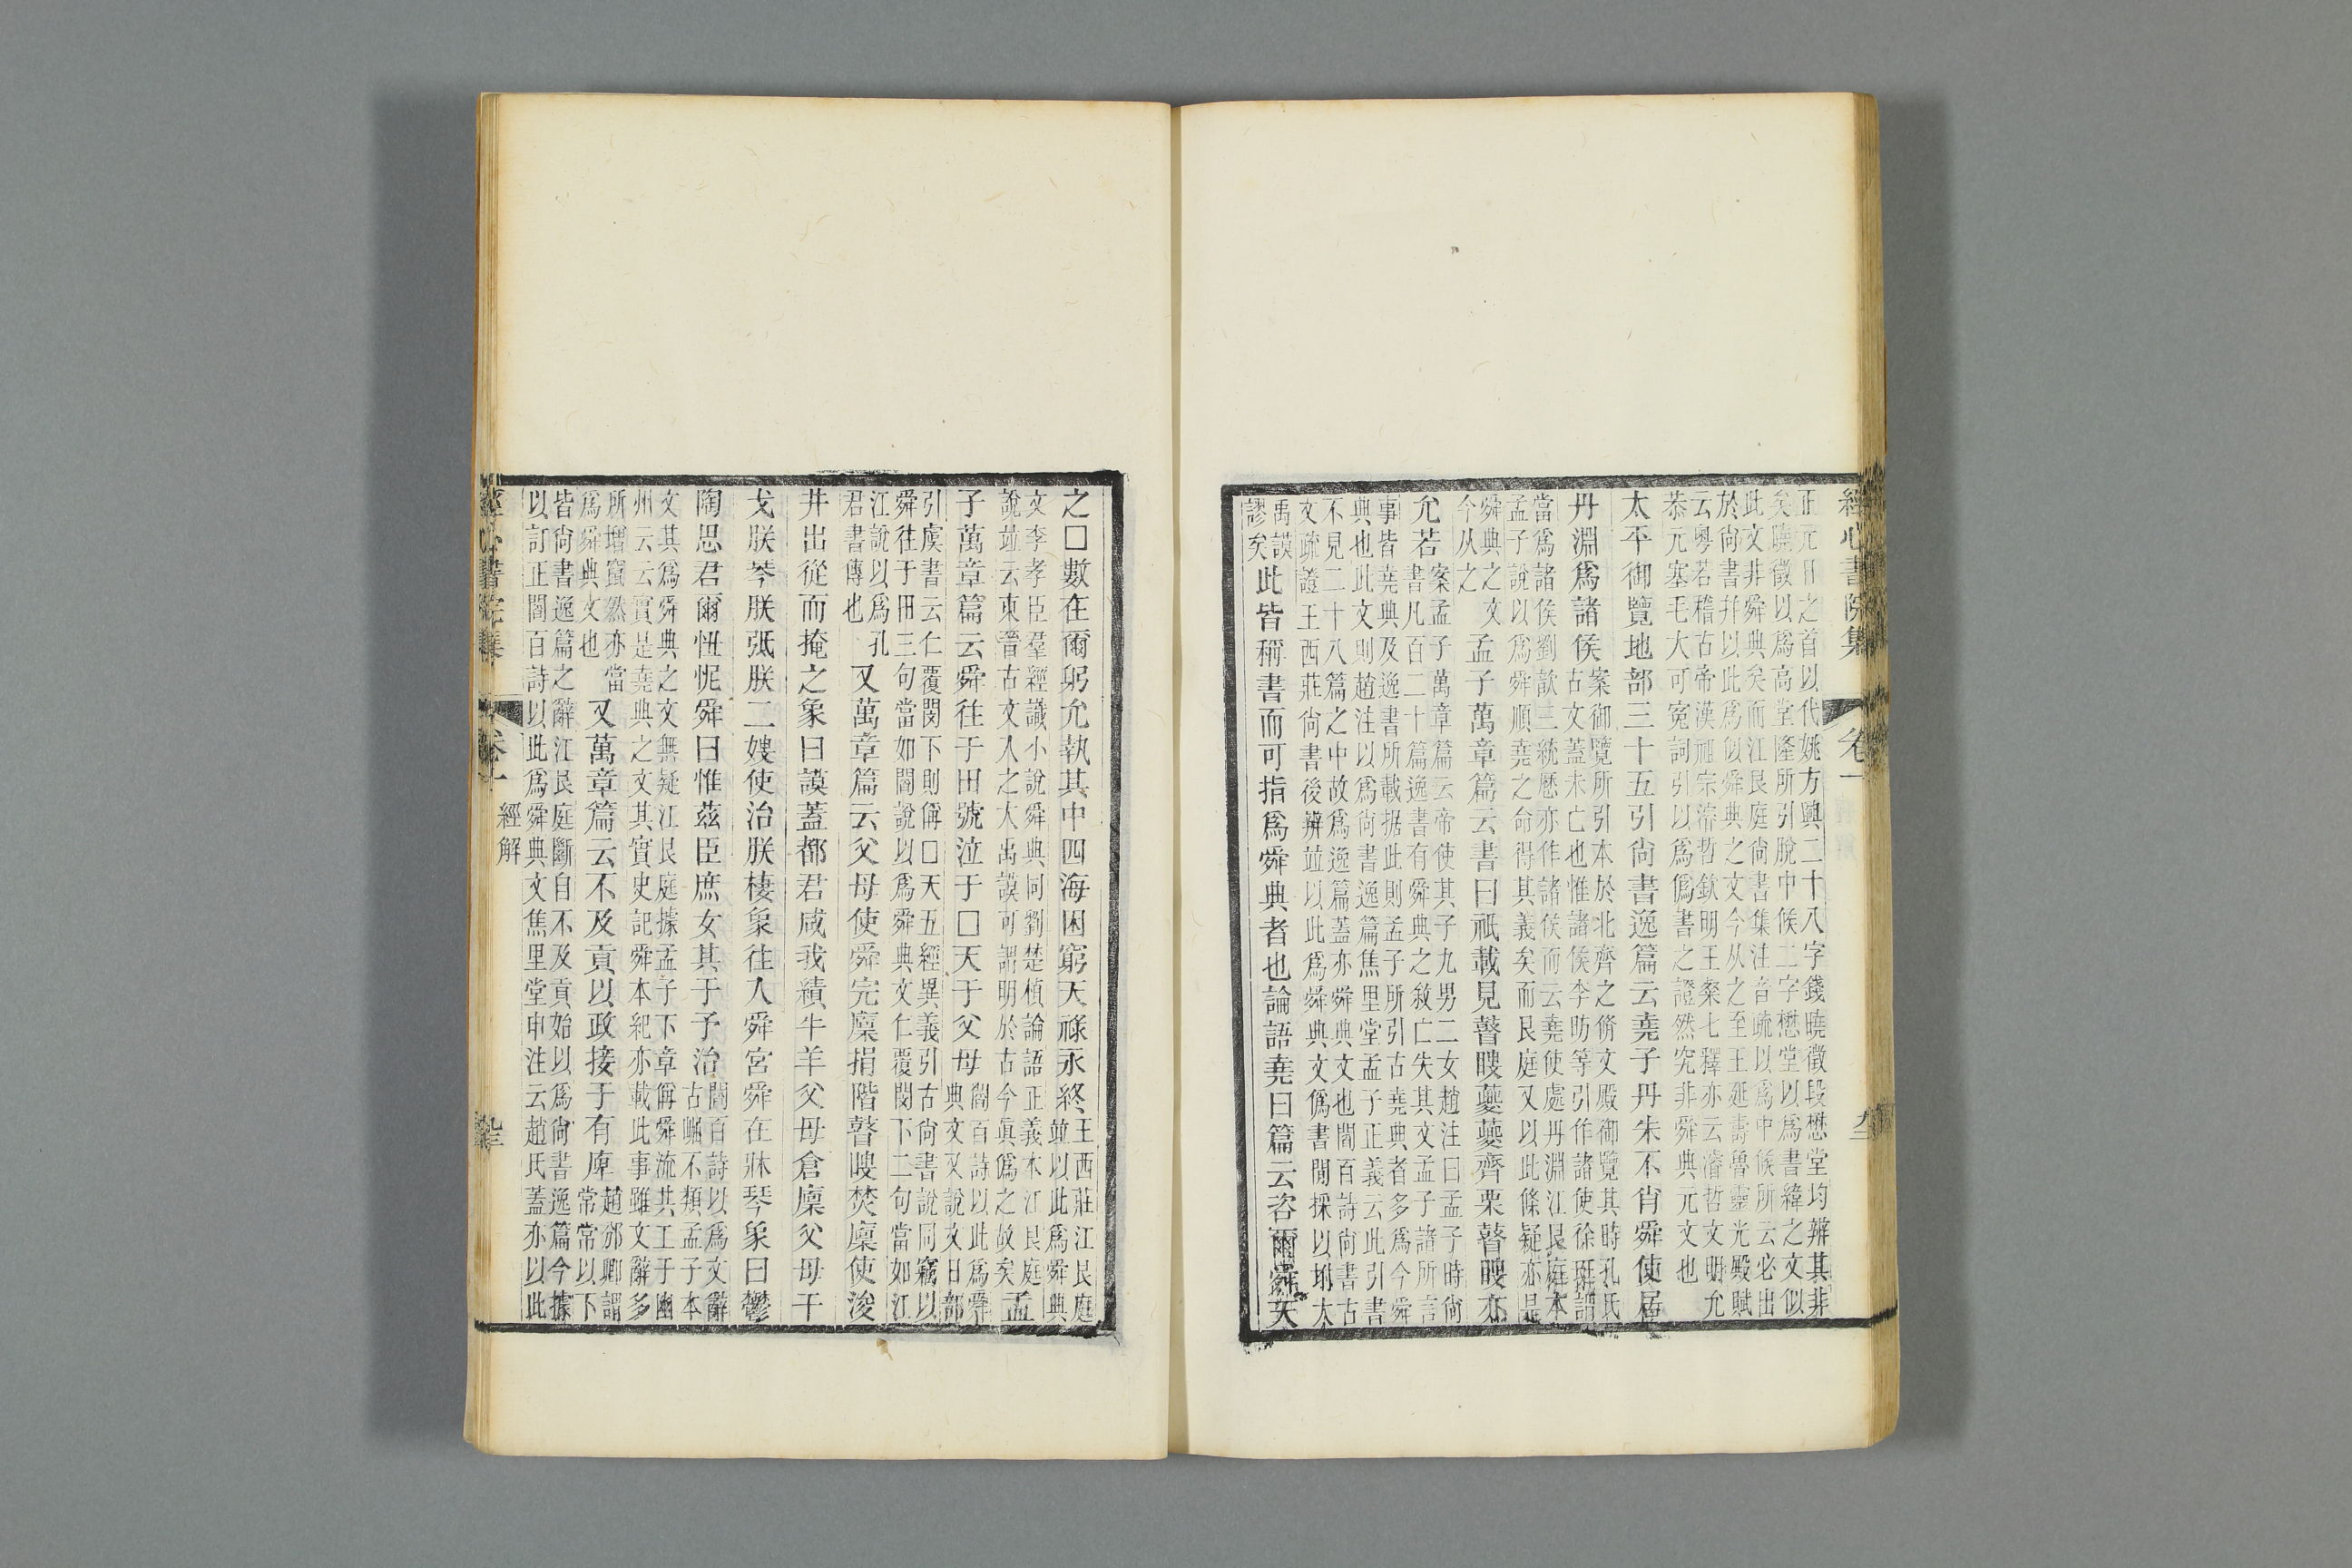 經心書院集 卷一 九三
正元日之首以代姚方興二十八字錢曉徵段懋堂均辨其非
矣曉徵以爲高堂隆所引脫中候二字懋堂以爲書緯之文似
此文非舜典矣而江艮庭尚書集注音疏以爲中候所云必出
於尚書并以此爲似舜典之文今从之至王延壽魯靈光殿賦
云粵若稽古帝漢祖宗濬哲欽明王粲七釋亦云濬哲文明允
恭元塞毛大可寃詞引以爲僞書之證然究非舜典元文也
太平御覽地部三十五引尚書逸篇云堯子丹朱不肖舜使居
丹淵爲諸侯
案御覽所引本於北齊之脩文殿御覽其時孔氏
古文蓋未亡也惟諸侯李昉等引作諸使徐珽謂
當爲諸侯劉歆三統歷亦作諸侯而云堯使處丹淵江艮庭本
孟子說以爲舜順堯之命得其義矣而艮庭又以此條疑亦是
舜典之文
今从之
孟子萬章篇云書曰祇載見瞽瞍夔夔齊栗瞽瞍亦
允若
案孟子萬章篇云帝使其子九男二女趙注曰孟子時尚
書凡百二十篇逸書有舜典之敘亡失其文孟子諸所言
事皆堯典及逸書所載据此則孟子所引古堯典者多爲今舜
典也此文則趙注以爲尚書逸篇焦里堂孟子正義云此引書
不見二十八篇之中故爲逸篇蓋亦舜典文也閻百詩尚書古
文疏證王西莊尚書後辨並以此爲舜典文僞書閒採以㘸大
禹謨
謬矣
此皆稱書而可指爲舜典者也論語堯曰篇云咨爾舜天
之□數在爾躬允執其中四海困窮天祿永終
王西莊江艮庭
並以此爲舜典
文李孝臣羣經識小說舜典同劉楚楨論語正義本江艮庭
說並云東晉古文入之大禹謨可謂明於古今眞僞之故矣
孟
子萬章篇云舜往于田號泣于□天于父母
閻百詩以此爲舜
典文又說文日部
引虞書云仁覆閔下則偁□天五經異義引古尚書說同竊以
舜往于田三句當如閻說以爲舜典文仁覆閔下二句當如江
江說以爲孔
君書傳也
又萬章篇云父母使舜完廩捐階瞽瞍焚廩使浚
井出從而掩之象曰謨蓋都君咸我績牛羊父母倉廩父母干
戈朕琴朕弤朕二嫂使治朕棲象往入舜宮舜在牀琴象曰鬱
陶思君爾忸怩舜曰惟茲臣庶女其于予治
閻百詩以爲文辭
古崛不類孟子本
文其爲舜典之文無疑江艮庭據孟子下章偁舜流共工于幽
州云云實是堯典之文其實史記舜本紀亦載此事雖文辭多
所增竄然亦當
爲舜典文也
又萬章篇云不及貢以政接于有庳
趙邠卿謂
常常以下
皆尚書逸篇之辭江艮庭斷自不及貢始以爲尚書逸篇今據
以訂正閻百詩以此爲舜典文焦里堂申注云趙氏蓋亦以此
經心書院集 卷一 經解 九三